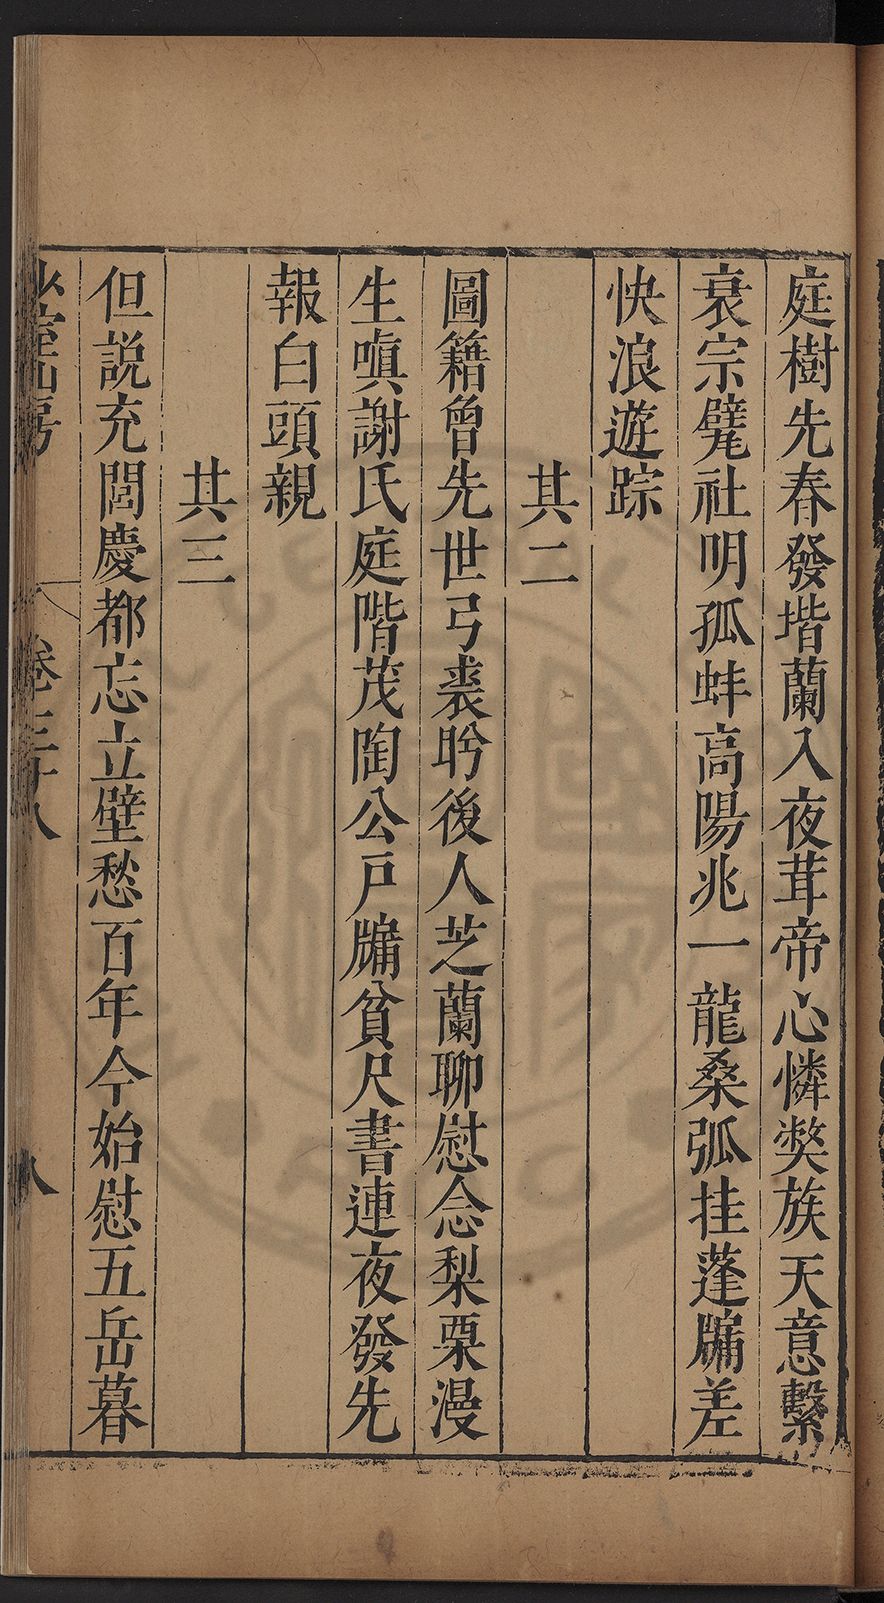 庭樹先春發堦蘭入夜茸帝心憐獘族天意繫
衰宗甓社明孤蚌高陽兆一龍桑弧挂蓬牖差
快浪遊踪
其二
圖籍曾先世弓裘盻後人芝蘭聊慰念梨栗漫
生嗔謝氏庭階茂陶公戸牖貧尺書連夜發先
報白頭親
其三
但説充閭慶都忘立壁愁百年今始慰五岳暮
卷三十八
八